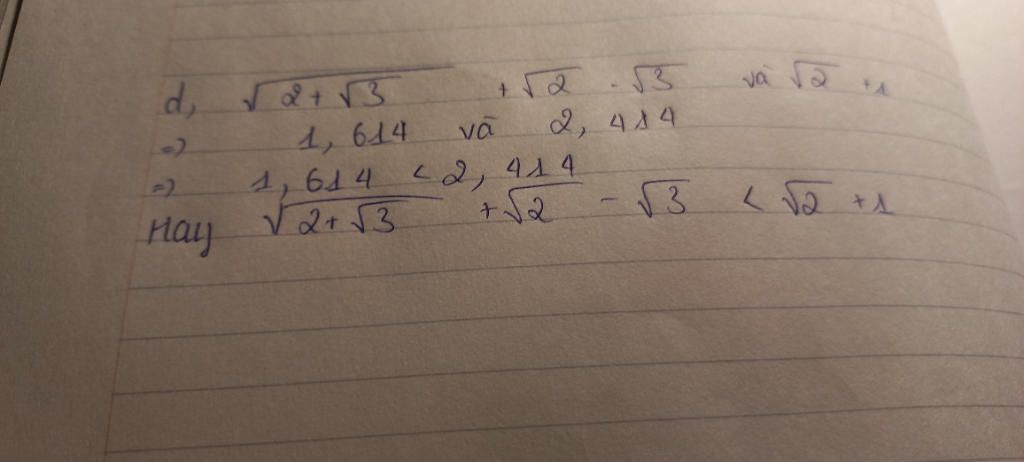 d, √(2+√3) + √2 - √3 và √2 + 1
=) 1, 614 và 2, 414
=) 1, 614 < 2, 414
Hay √(2+√3) + √2 - √3 < √2 + 1